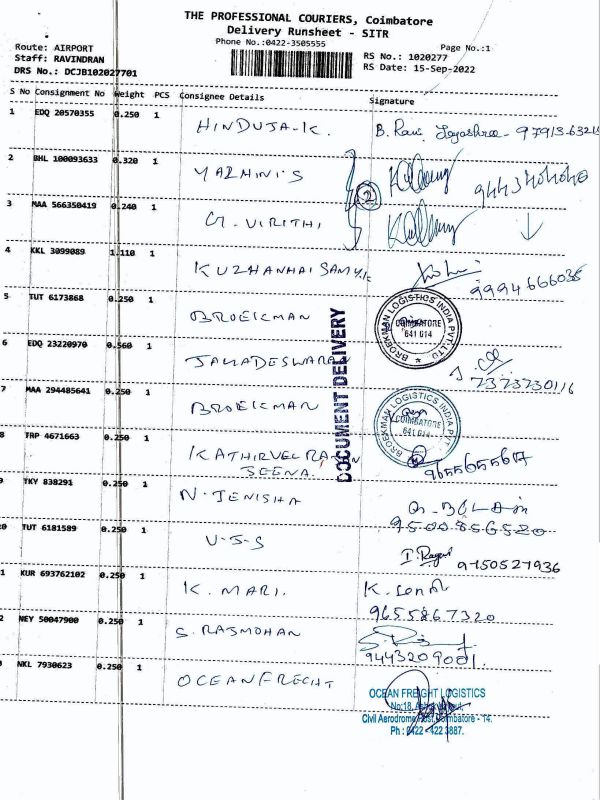 THE PROFESSIONAL COURIERS, Coimbatore
Delivery Runsheet - SITR
Phone No.:0422-3505555
Page No.:1
Route: AIRPORT
Staff: RAVINDRAN
DRS No.: DCJB102027701
RS No.: 1020277
RS Date: 15-Sep-2022
S No Consignment No Weight PCS Consignee Details Signature
1 EDQ 20570355 0.250 1 HINDUJA-K. B. Ravi Jayashree - 97913-6321
2 BHL 100093633 0.320 1 YAZHINI'S 2
3 MAA 566350419 0.240 1 G. VIRITHI
4 KKL 3099089 1.110 1 KUZHANHAISAMY.K 9994666036
5 TUT 6173868 0.250 1 BROEKMAN
BROEKMAN LOGISTICS INDIA PVT. LTD.
COIMBATORE
641 014
DOCUMENT DELIVERY
6 EDQ 23220970 0.560 1 JAGADESWARAN 7373730116
7 MAA 294485641 0.250 1 BROEKMAN
BROEKMAN LOGISTICS INDIA PVT.
COIMBATORE
641 014
8 TRP 4671663 0.250 1 KATHIRVEL RAJAN 9655655617
SEENA.
9 TKY 838291 0.250 1 N. JENISHA
9500856520
0 TUT 6181589 0.250 1 V-S-S 9750527936
1 KUR 693762102 0.250 1 K. MARI.
9655867320
2 NEY 50047900 0.250 1 S. RAJMOHAN
9443209001.
NKL 7930623 0.250 1 OCEANFRECHT
OCEAN FREIGHT LOGISTICS
No:18,
Civil Aerodrome Post, Coimbatore - 14.
Ph : 0422 - 422 3887.